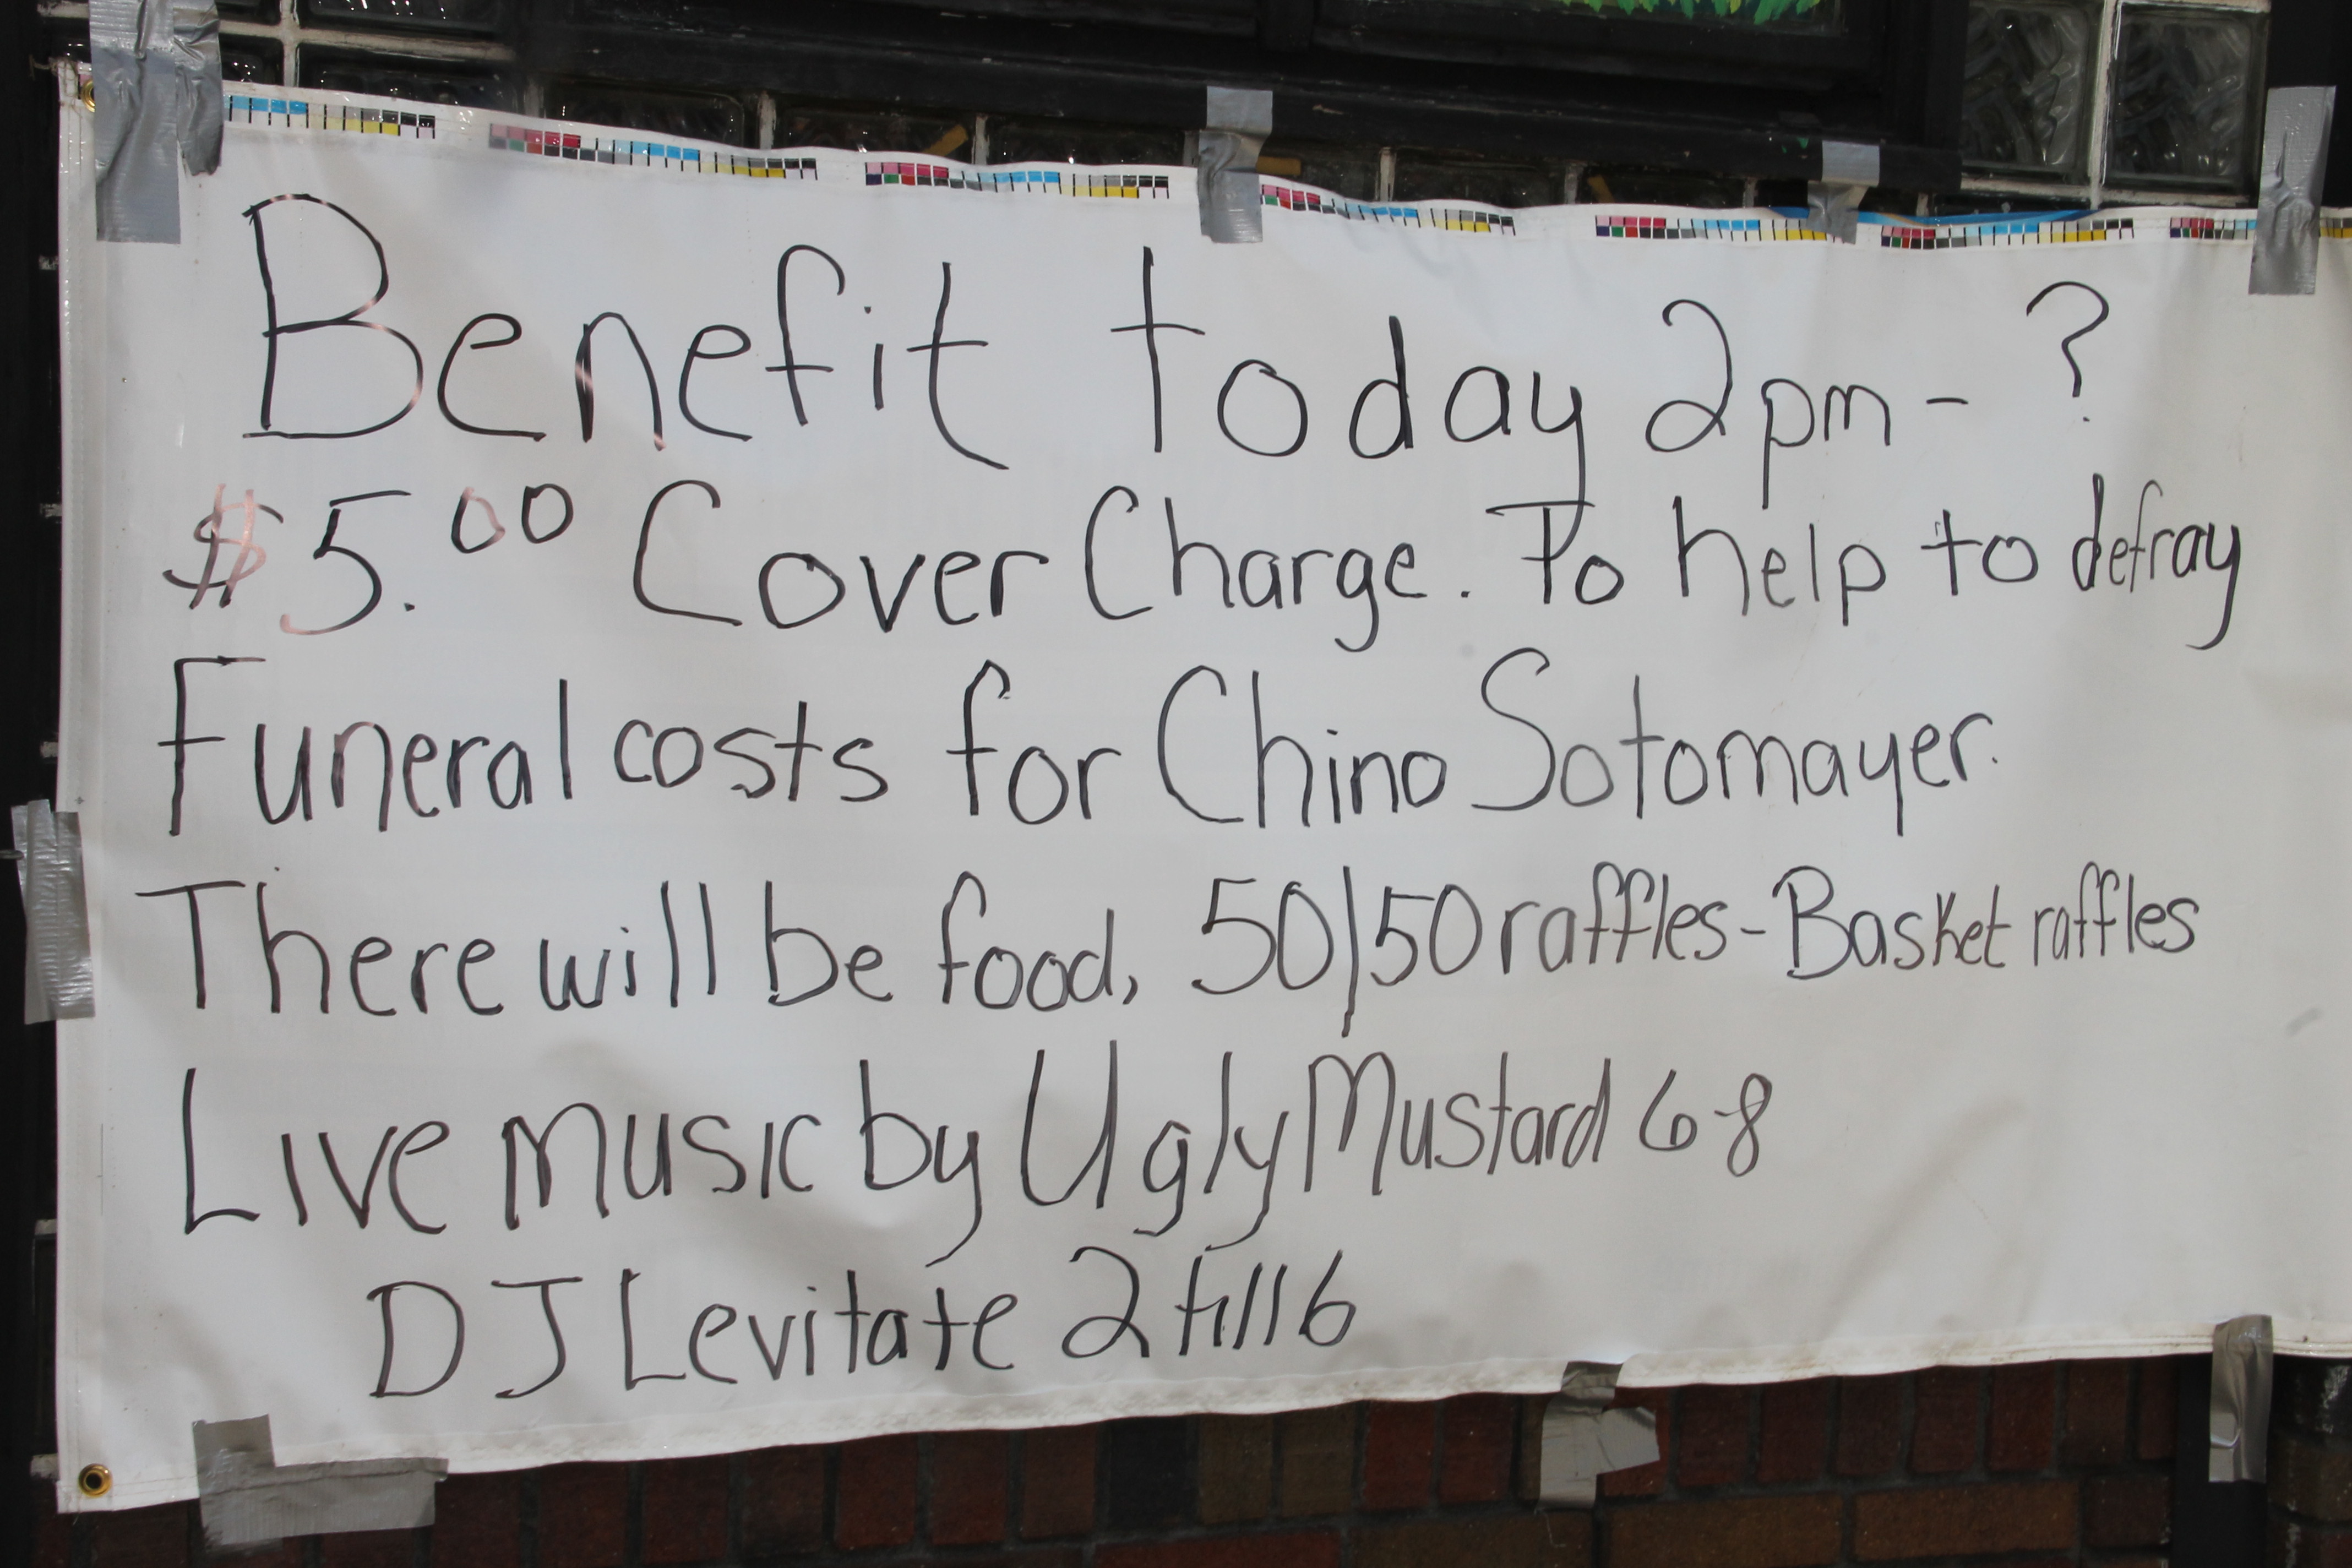 Benefit today 2pm - ?
$5.00 Cover Charge. To help to defray
Funeral costs for Chino Sotomayer.
There will be food, 50/50 raffles - Basket raffles
Live music by Ugly Mustard 6-8
DJ Levitate 2 till 6